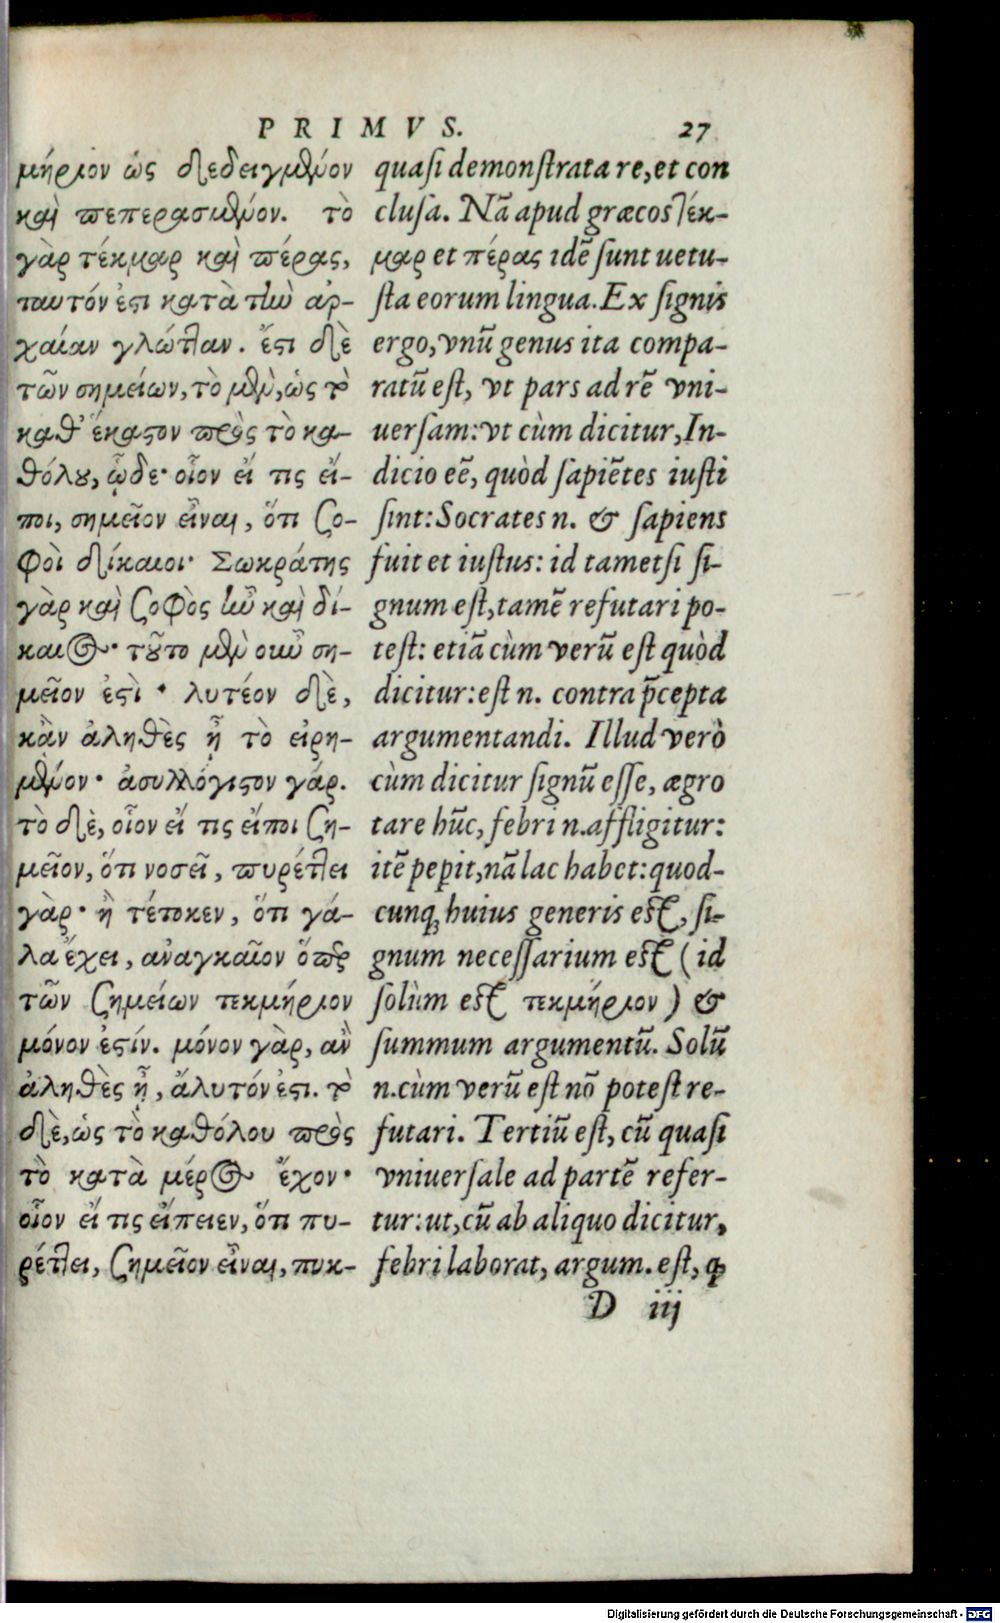 PRIMVS. 27
μήριον ὡς δεδειγμένον
καὶ πεπερασμένον. τὸ
γὰρ τέκμαρ καὶ πέρας,
ταυτόν ἐστι κατὰ τὴν ἀρ-
χαίαν γλῶτταν. ἔστι δὲ
τῶν σημείων, τὸ μὲν, ὡς τὸ
καθ' ἕκαστον πρὸς τὸ κα-
θόλου, ὧδε· οἷον εἴ τις εἴ-
ποι, σημεῖον εἶναι, ὅτι σο-
φοὶ δίκαιοι· Σωκράτης
γὰρ καὶ σοφὸς ἦν καὶ δί-
καιος· τοῦτο μὲν οὖν ση-
μεῖον ἐστὶ · λυτέον δὲ,
κἂν ἀληθὲς ᾖ τὸ εἰρη-
μένον· ἀσυλλόγιστον γάρ.
τὸ δὲ, οἷον εἴ τις εἴποι ση-
μεῖον, ὅτι νοσεῖ, πυρέττει
γὰρ· ἢ τέτοκεν, ὅτι γά-
λα ἔχει, ἀναγκαῖον ὅπερ
τῶν σημείων τεκμήριον
μόνον ἐστίν. μόνον γὰρ, ἂν
ἀληθὲς ᾖ, ἄλυτόν ἐστι. τὸ
δὲ, ὡς τὸ καθόλου πρὸς
τὸ κατὰ μέρος ἔχον·
οἷον εἴ τις εἴπειεν, ὅτι πυ-
ρέττει, σημεῖον εἶναι, πυκ-
quasi demonstrata re, et con
clusa. Nã apud græcos τέκ-
μαρ et πέρας idẽ sunt uetu-
sta eorum lingua. Ex signis
ergo, vnũ genus ita compa-
ratũ est, vt pars ad rẽ vni-
uersam: vt cùm dicitur, In-
dicio eẽ, quòd sapiẽtes iusti
sint: Socrates n. & sapiens
fuit et iustus: id tametsi si-
gnum est, tamẽ refutari po-
test: etiã cùm verũ est quòd
dicitur: est n. contra p̃cepta
argumentandi. Illud verò
cùm dicitur signũ esse, ægro
tare hũc, febri n. affligitur:
itẽ peperit, nã lac habet: quod-
cunq; huius generis est, si-
gnum necessarium est (id
solùm est τεκμήριον) &
summum argumentũ. Solũ
n. cùm verũ est nõ potest re-
futari. Tertiũ est, cũ quasi
vniuersale ad partẽ refer-
tur: ut, cũ ab aliquo dicitur,
febri laborat, argum. est, ꝙ
D iij
Digitalisierung gefördert durch die Deutsche Forschungsgemeinschaft - DFG